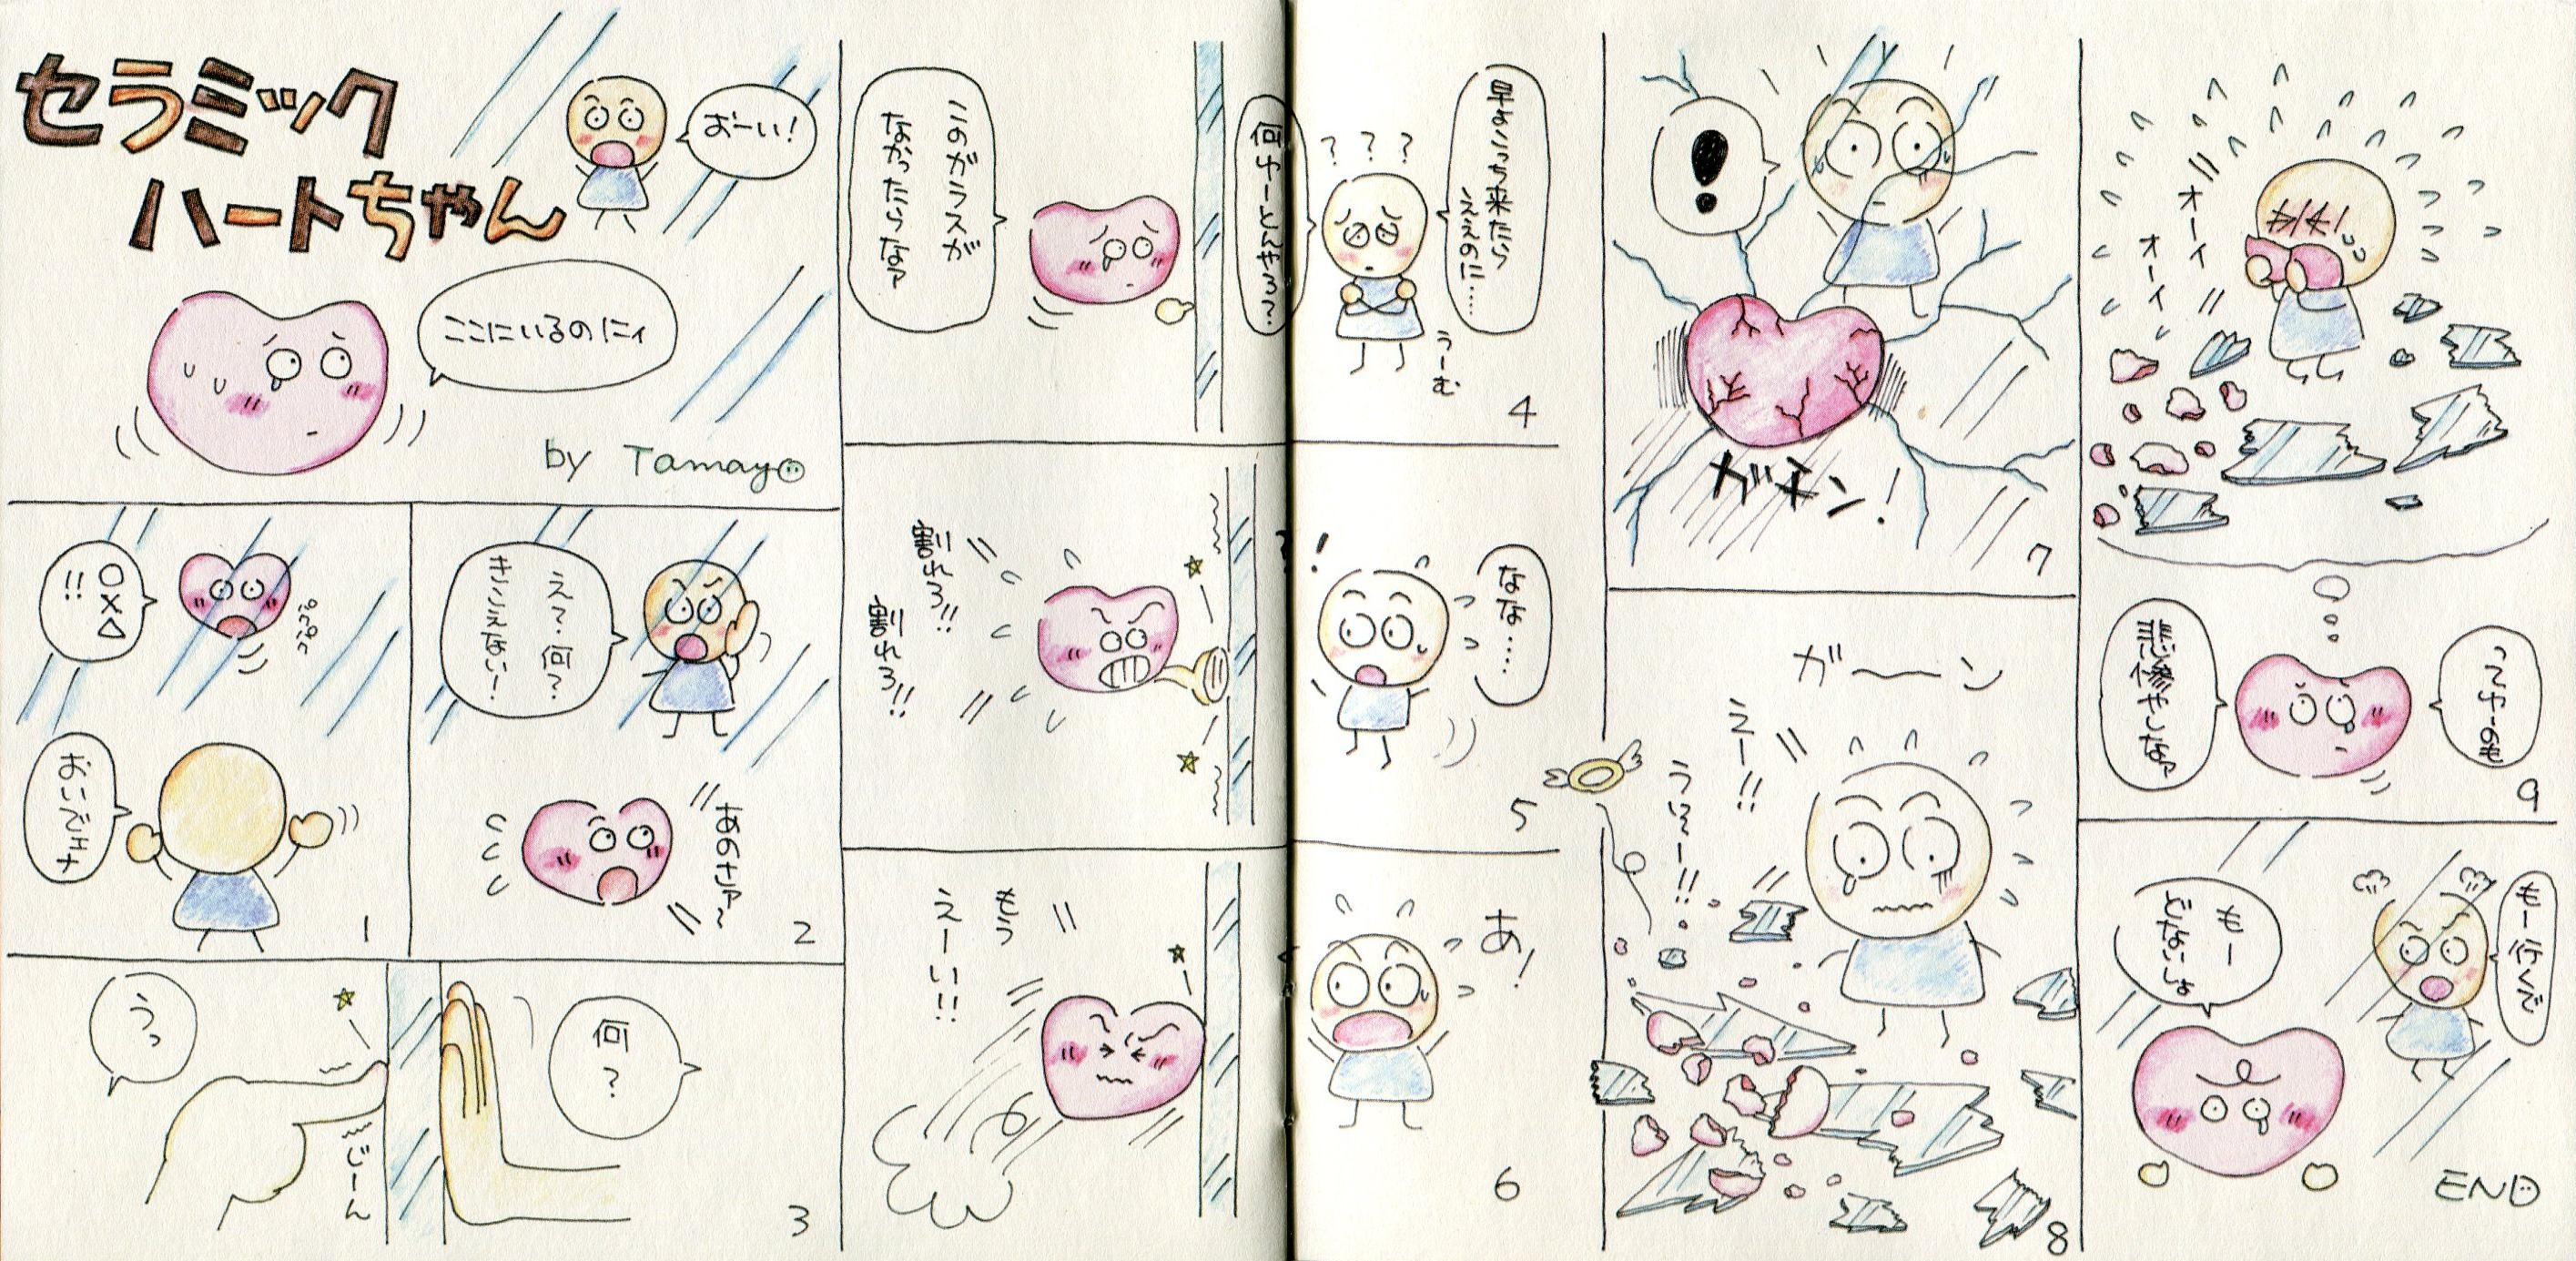 セラミック
ハートちゃん
おーい!
ここにいるのにィ
by Tamayo
○×△
!!
おいでェナ
1
え?何?
きこえない!
あのさァ〜
2
うっ
じーん
何
?
3
このガラスが
なかったらなァ
何ゆーとんやろ?
? ? ?
早よこっち来たら
ええのに……
うーむ
4
割れろ!!
割れろ!!
!
なな……
5
もう
えーい!!
あ!
6
!
ガチン!
7
ガーン
えー!!
うぃ〜ー!!
8
オーイ
オーイ
ってゆーのも
悲惨やしなァ
9
もー行くで
もー
どないしよ
END